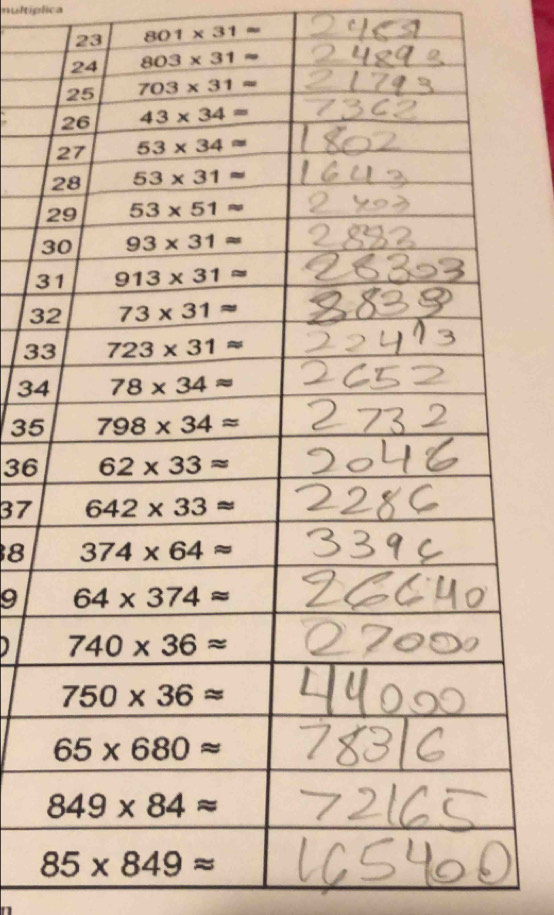 multiplica
23 801 × 31 ≈
24 803 × 31 ≈ 24893
25 703 × 31 ≈ 21793
26 43 × 34 ≈ 7362
27 53 × 34 ≈ 1802
28 53 × 31 ≈ 1643
29 53 × 51 ≈
30 93 × 31 ≈ 2883
31 913 × 31 ≈ 28303
32 73 × 31 ≈
33 723 × 31 ≈ 22413
34 78 × 34 ≈ 2652
35 798 × 34 ≈ 2732
36 62 × 33 ≈ 2046
37 642 × 33 ≈ 2286
38 374 × 64 ≈ 3396
9 64 × 374 ≈ 26640
740 × 36 ≈ 27000
750 × 36 ≈ 44000
65 × 680 ≈ 78316
849 × 84 ≈ 72165
85 × 849 ≈ 165400